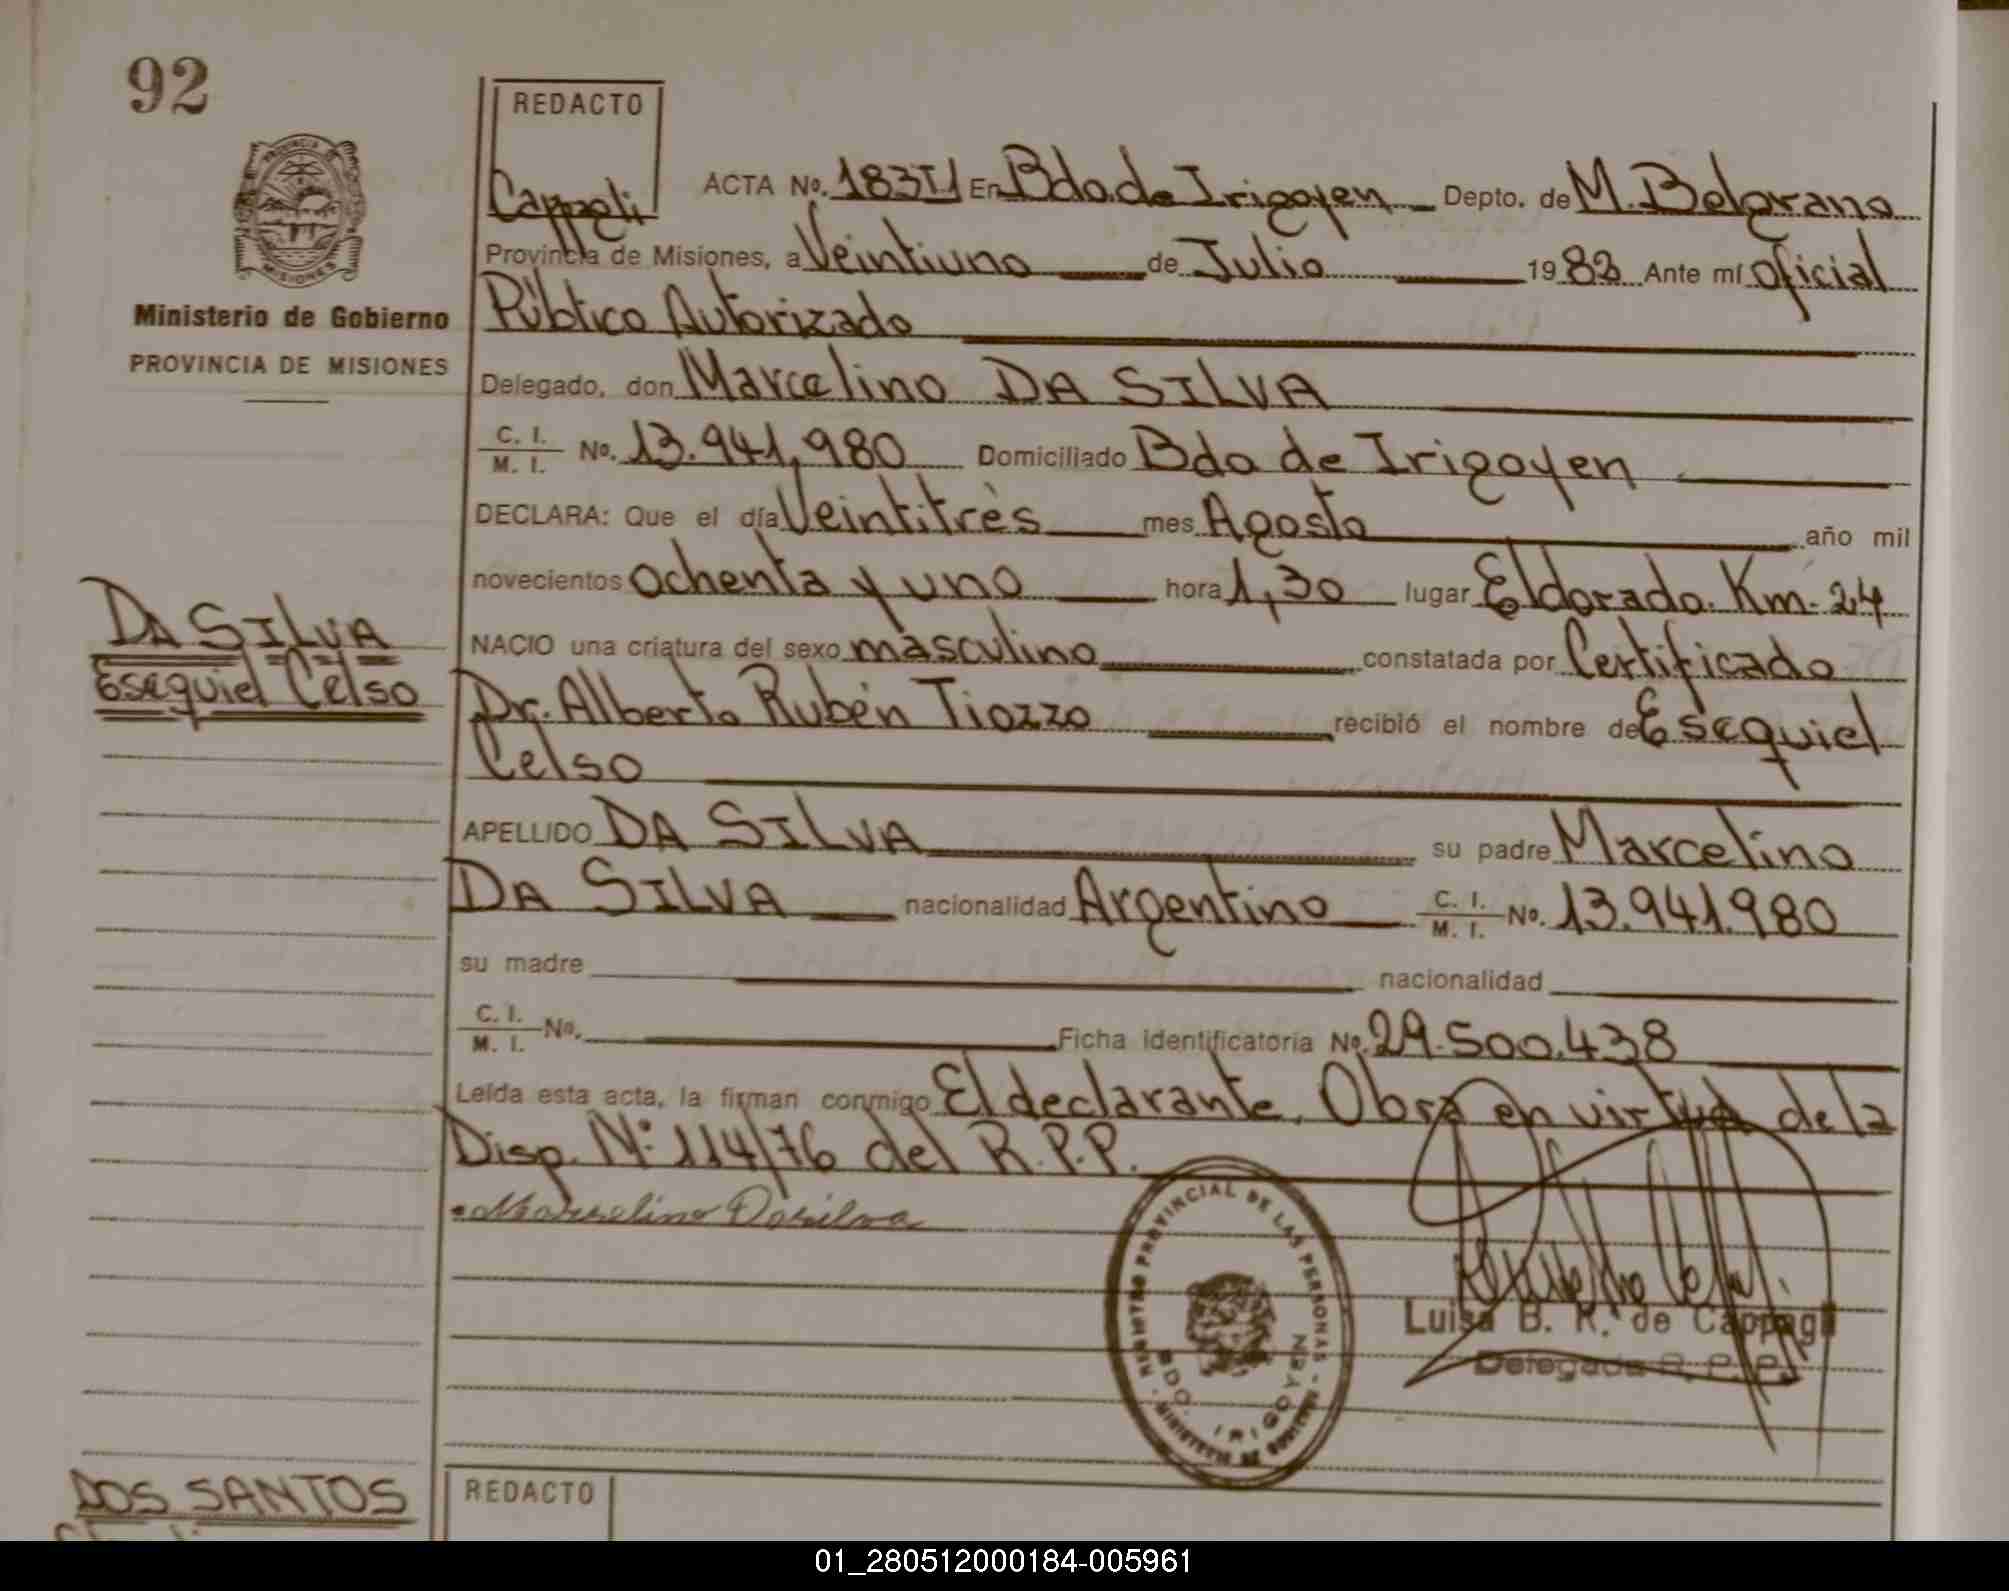 92
REDACTO
Cappagli
ACTA No. 183 TI En Bdo. de Irigoyen Depto. de M. Belgrano
Provincia de Misiones, a Veintiuno de Julio 1983 Ante mí Oficial
Público Autorizado
Ministerio de Gobierno
PROVINCIA DE MISIONES
Delegado, don Marcelino DA SILVA
C. I.
M. I. No. 13.941.980 Domiciliado Bdo de Irigoyen
DECLARA: Que el día Veintitrès mes Agosto año mil
novecientos ochenta y uno hora 1,30 lugar Eldorado. Km. 24
DA SILVA
Esequiel Celso
NACIO una criatura del sexo masculino constatada por Certificado
Dr. Alberto Rubén Tiozzo recibió el nombre de Esequiel
Celso
APELLIDO DA SILVA su padre Marcelino
DA SILVA nacionalidad Argentino C. I. M. I. No. 13.941.980
su madre nacionalidad
C. I. M. I. No. Ficha identificatoria No. 29.500.438
Leída esta acta, la firman conmigo El declarante, Obra en virtud de la
Disp. Nº 114/76 del R.P.P.
Marcelino Dasilva
REGISTRO PROVINCIAL DE LAS PERSONAS - MISIONES
BDO. IRIGOYEN
Luisa B. R. de Cappagli
Delegada R. P. P.
DOS SANTOS
REDACTO
01_280512000184-005961